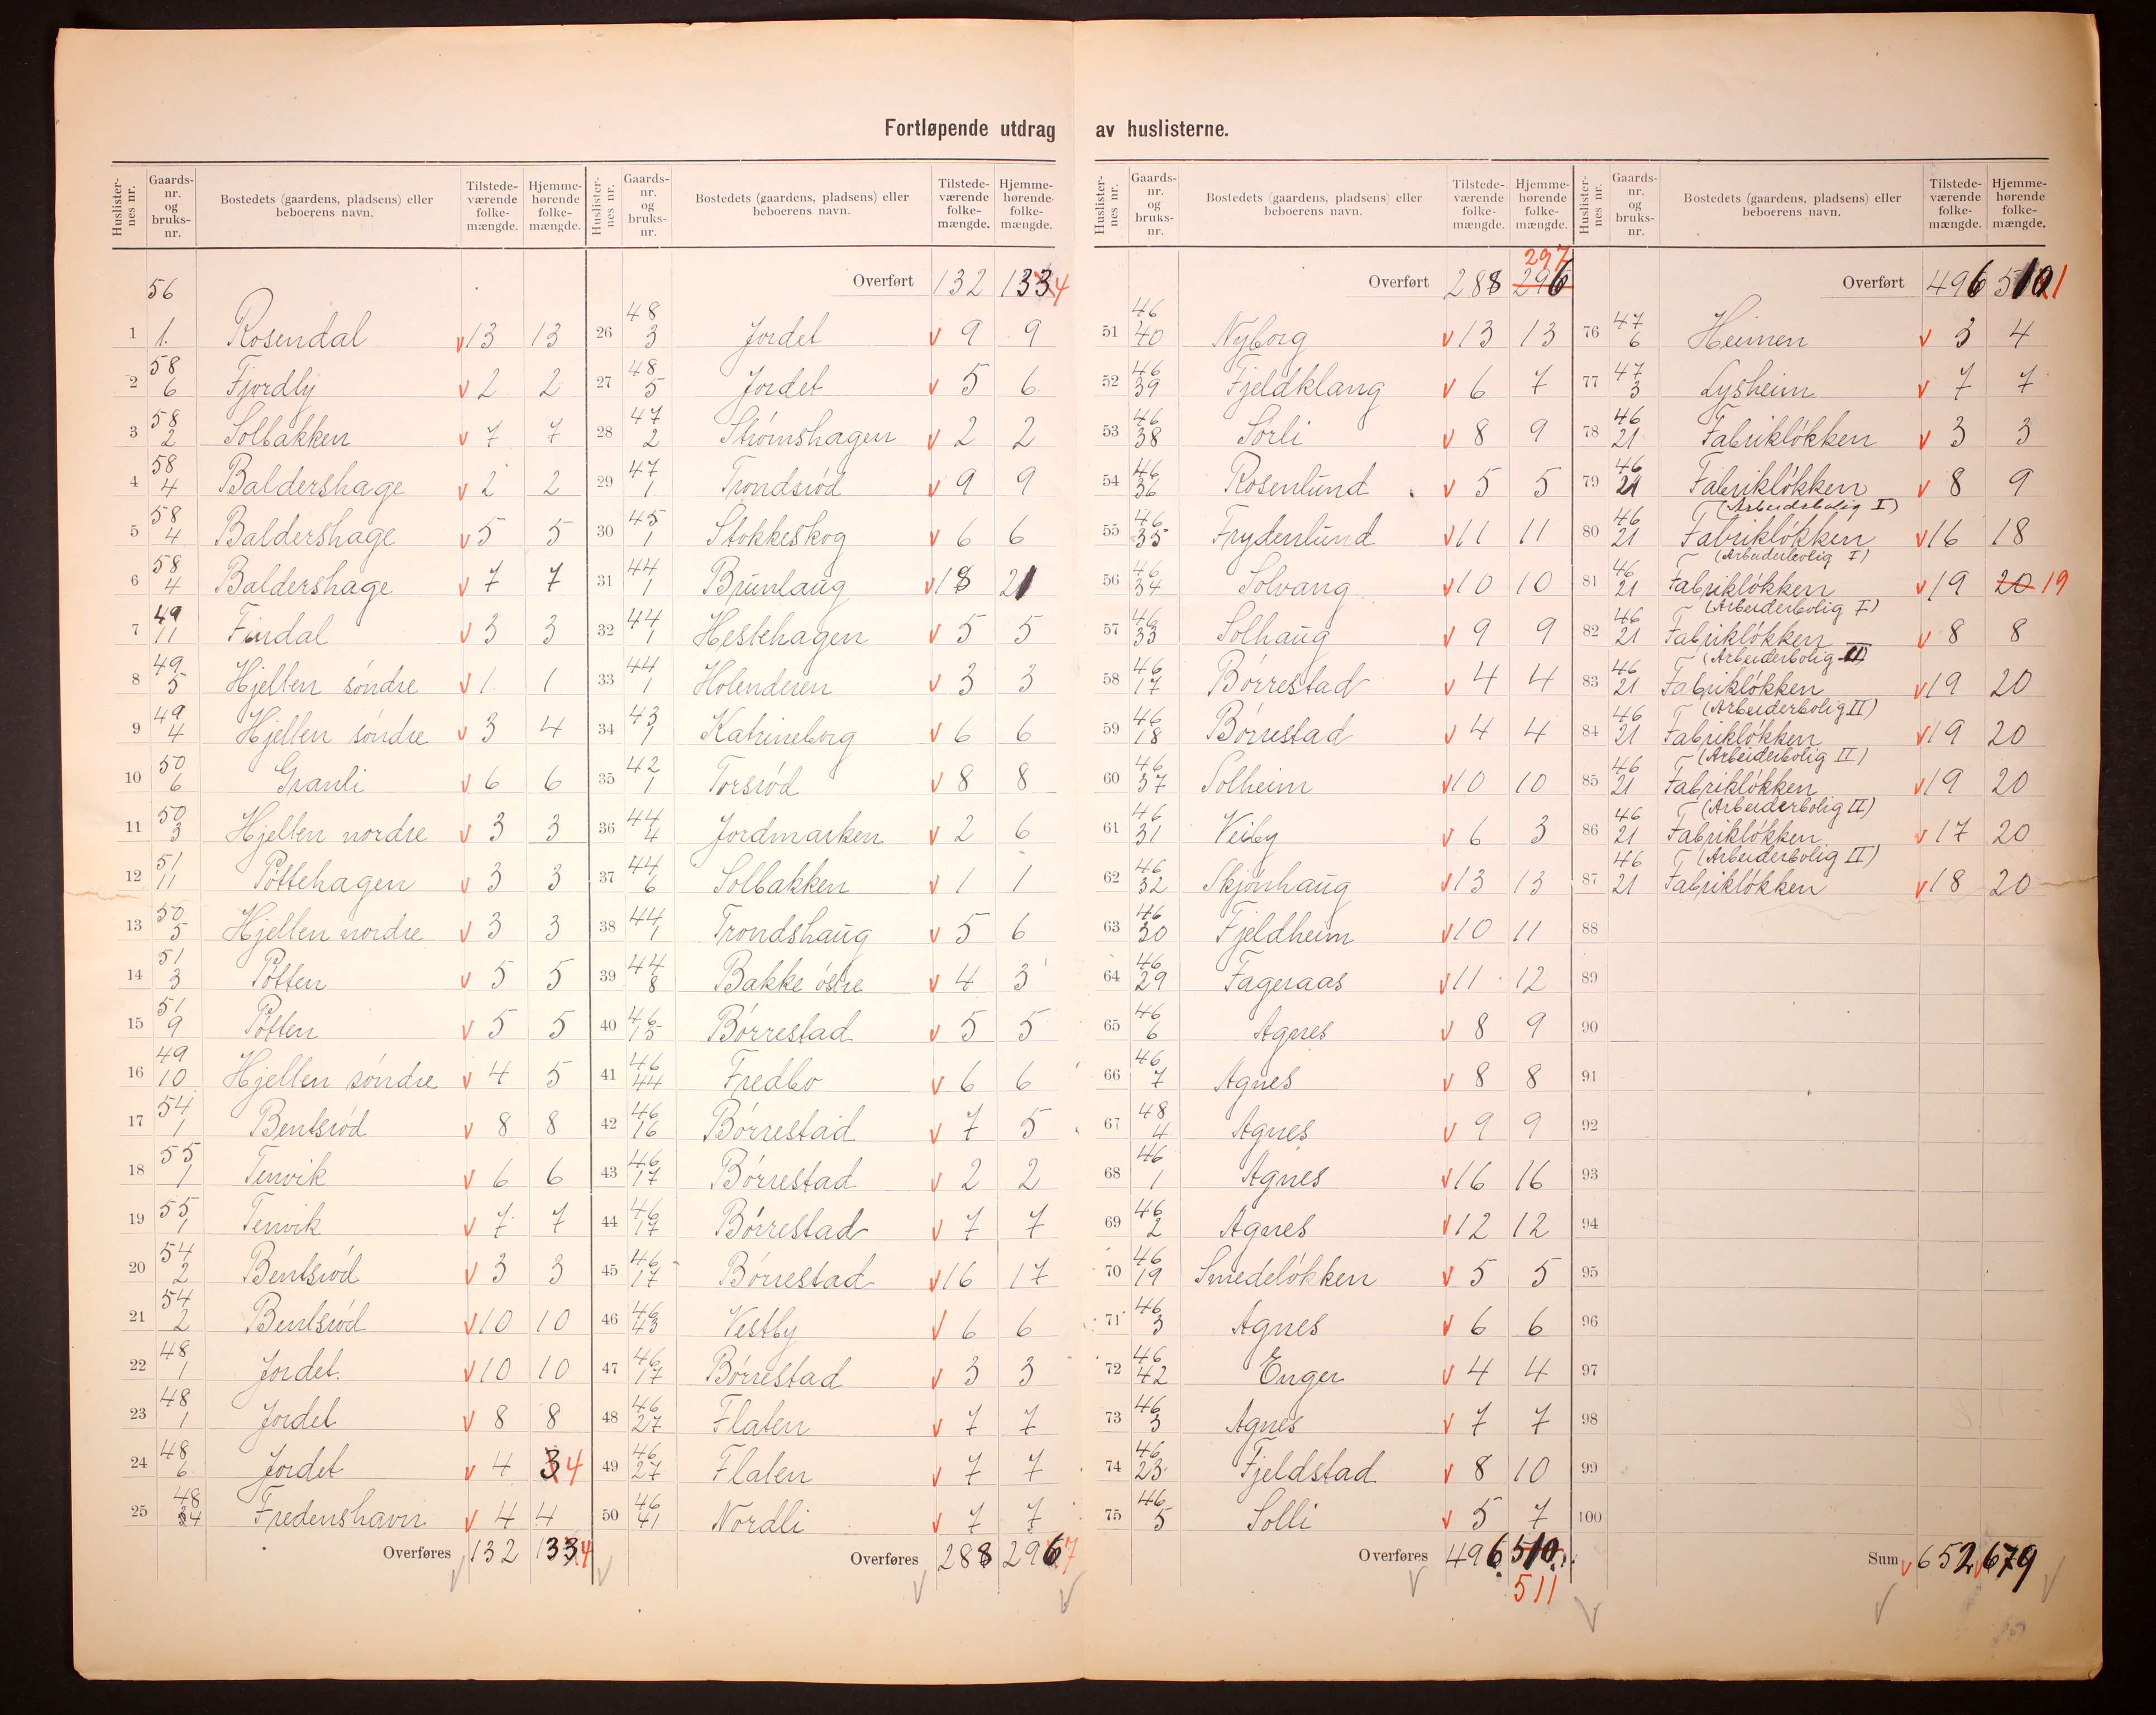 Fortløpende utdrag av huslisterne.
Huslister-nes nr. Gaards-nr. og bruks-nr. Bostedets (gaardens, pladsens) eller beboerens navn. Tilstede-værende folke-mængde. Hjemme-hørende folke-mængde.
1 56 1. Rosendal v 13 13
2 58 6 Fjordly v 2 2
3 58 2 Solbakken v 7 7
4 58 4 Baldershage v 2 2
5 58 4 Baldershage v 5 5
6 58 4 Baldershage v 7 7
7 49 11 Findal v 3 3
8 49 5 Hjellen søndre v 1 1
9 49 4 Hjellen søndre v 3 4
10 50 6 Granli v 6 6
11 50 3 Hjellen nordre v 3 3
12 51 11 Pøttehagen v 3 3
13 50 5 Hjellen nordre v 3 3
14 51 3 Pøtten v 5 5
15 51 9 Pøtten v 5 5
16 49 10 Hjellen søndre v 4 5
17 54 1 Bentsrød v 8 8
18 55 1 Tenvik v 6 6
19 55 1 Tenvik v 7 7
20 54 2 Bentsrød v 3 3
21 54 2 Bentsrød v 10 10
22 48 1 Jordet. v 10 10
23 48 1 Jordet v 8 8
24 48 6 Jordet v 4 3 4
25 48 4 Fredenshavn v 4 4
Overføres 132 133 4
Huslister-nes nr. Gaards-nr. og bruks-nr. Bostedets (gaardens, pladsens) eller beboerens navn. Tilstede-værende folke-mængde. Hjemme-hørende folke-mængde.
Overført 132 133 4
26 48 3 Jordet v 9 9
27 48 5 Jordet v 5 6
28 47 2 Strømshagen v 2 2
29 47 1 Trondsrød v 9 9
30 45 1 Stokkeskog v 6 6
31 44 1 Brunlaug v 18 21
32 44 1 Hestehagen v 5 5
33 44 1 Holenderen v 3 3
34 43 1 Katrineborg v 6 6
35 42 1 Torsrød v 8 8
36 44 4 Jordmarken v 2 6
37 44 6 Solbakken v 1 1
38 44 1 Trondshaug v 5 6
39 44 8 Bakke østre v 4 3
40 46 15 Børrestad v 5 5
41 46 44 Fredbo v 6 6
42 46 16 Børrestad v 7 5
43 46 17 Børrestad v 2 2
44 46 17 Børrestad v 7 7
45 46 17 Børrestad v 16 17
46 46 43 Vestby v 6 6
47 46 17 Børrestad v 3 3
48 46 27 Flaten v 7 7
49 46 27 Flaten v 7 7
50 46 41 Nordli v 7 7
Overføres 288 296 7
Huslister-nes nr. Gaards-nr. og bruks-nr. Bostedets (gaardens, pladsens) eller beboerens navn. Tilstede-værende folke-mængde. Hjemme-hørende folke-mængde.
297
Overført 288 296
51 46 40 Nyborg v 13 13
52 46 39 Fjeldklang v 6 7
53 46 38 Sørli v 8 9
54 46 36 Rosenlund v 5 5
55 46 35 Frydenlund v 11 11
56 46 34 Solvang v 10 10
57 46 33 Solhaug v 9 9
58 46 17 Børrestad v 4 4
59 46 18 Børrestad v 4 4
60 46 37 Solheim v 10 10
61 46 31 Veiby v 6 3
62 46 32 Skjønhaug v 13 13
63 46 30 Fjeldheim v 10 11
64 46 29 Fageraas v 11 12
65 46 6 Agnes v 8 9
66 46 7 Agnes v 8 8
67 48 4 Agnes v 9 9
68 46 1 Agnes v 16 16
69 46 2 Agnes v 12 12
70 46 19 Smedeløkken v 5 5
71 46 3 Agnes v 6 6
72 46 42 Enger v 4 4
73 46 3 Agnes v 7 7
74 46 23 Fjeldstad v 8 10
75 46 5 Solli v 5 7
Overføres 496 510
511
Huslister-nes nr. Gaards-nr. og bruks-nr. Bostedets (gaardens, pladsens) eller beboerens navn. Tilstede-værende folke-mængde. Hjemme-hørende folke-mængde.
Overført 496 510 1
76 47 6 Heimen v 3 4
77 47 3 Lysheim v 7 7
78 46 21 Fabrikløkken v 3 3
79 46 21 Fabrikløkken v 8 9
(Arbeidsbolig I)
80 46 21 Fabrikløkken v 16 18
(Arbeiderbolig I)
81 46 21 Fabrikløkken v 19 20 19
(Arbeiderbolig I)
82 46 21 Fabrikløkken v 8 8
(Arbeiderbolig II)
83 46 21 Fabrikløkken v 19 20
(Arbeiderbolig II)
84 46 21 Fabrikløkken v 19 20
(Arbeiderbolig II)
85 46 21 Fabrikløkken v 19 20
(Arbeiderbolig II)
86 46 21 Fabrikløkken v 17 20
(Arbeiderbolig II)
87 46 21 Fabrikløkken v 18 20
88
89
90
91
92
93
94
95
96
97
98
99
100
Sum v 652 v 679